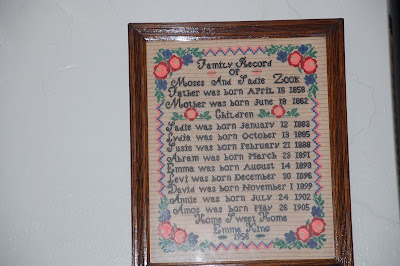 Family Record
OF
Moses And Sadie Zook
Father was born APRIL 16 1858
Mother was born June 18 1862
Children
Sadie was born January 12 1883
Lydia was born October 13 1885
Susie was born February 21 1888
Abram was born March 23 1891
Emma was born August 14 1893
Levi was born December 30 1896
David was born November 1 1899
Annie was born July 24 1902
Amos was born May 26 1905
Home Sweet Home
Emma King
1956